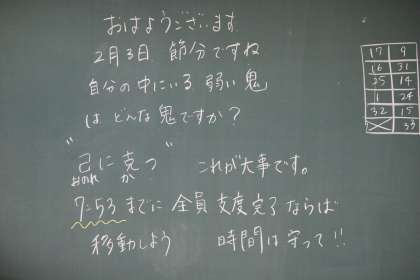 おはようございます
2月3日 節分ですね
自分の中にいる 弱い鬼
は どんな鬼ですか?
"己に克つ" これが大事です。
おのれ か
7:53 までに 全員 支度完了 ならば
移動しよう 時間は守って!!
17 9
16 31
25 14
1 24
32 15
33